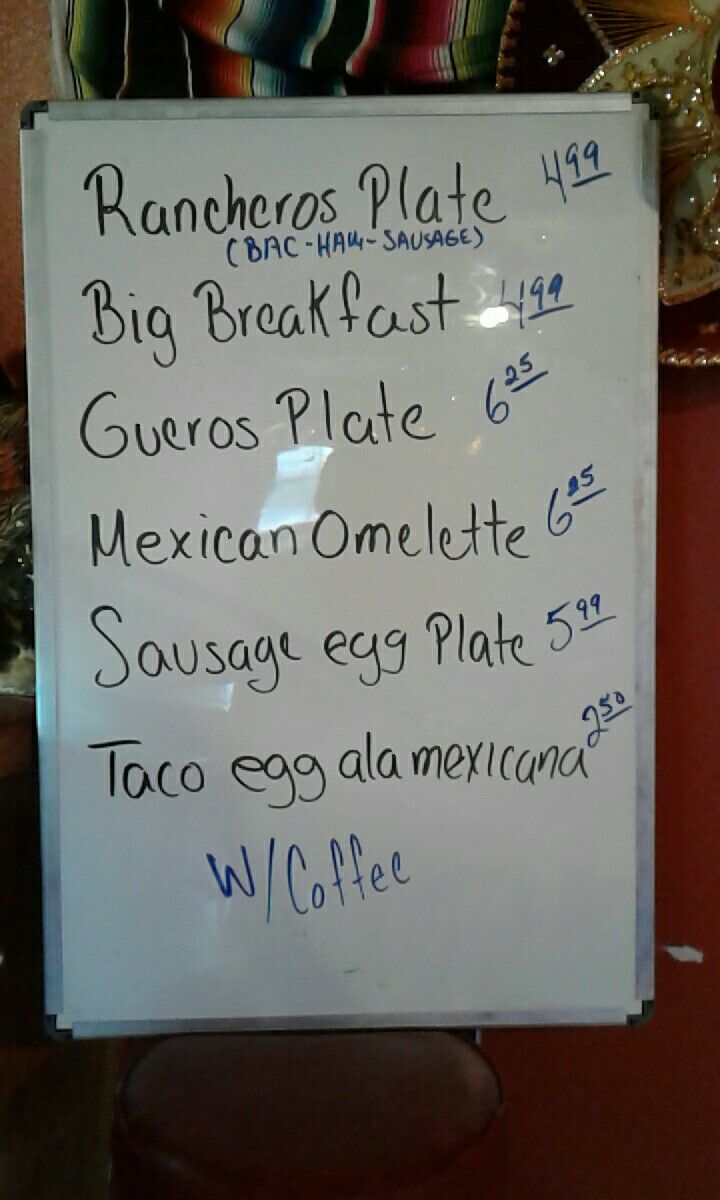 Rancheros Plate 4.99
(BAC-HAM-SAUSAGE)
Big Breakfast 4.99
Gueros Plate 6.25
Mexican Omelette 6.25
Sausage egg Plate 5.99
Taco egg ala mexicana 2.50
W/Coffee